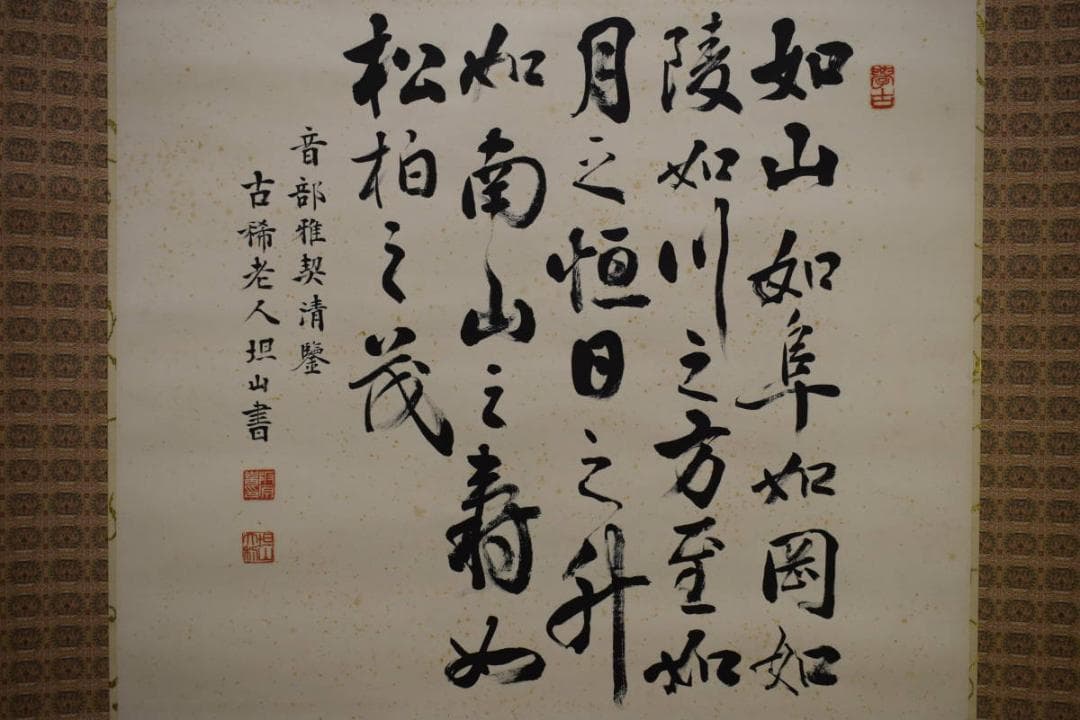 學古
如山如阜如岡如
陵如川之方至如
月之恒日之升
如南山之壽如
松柏之茂
音部雅契清鑒
古稀老人坦山書